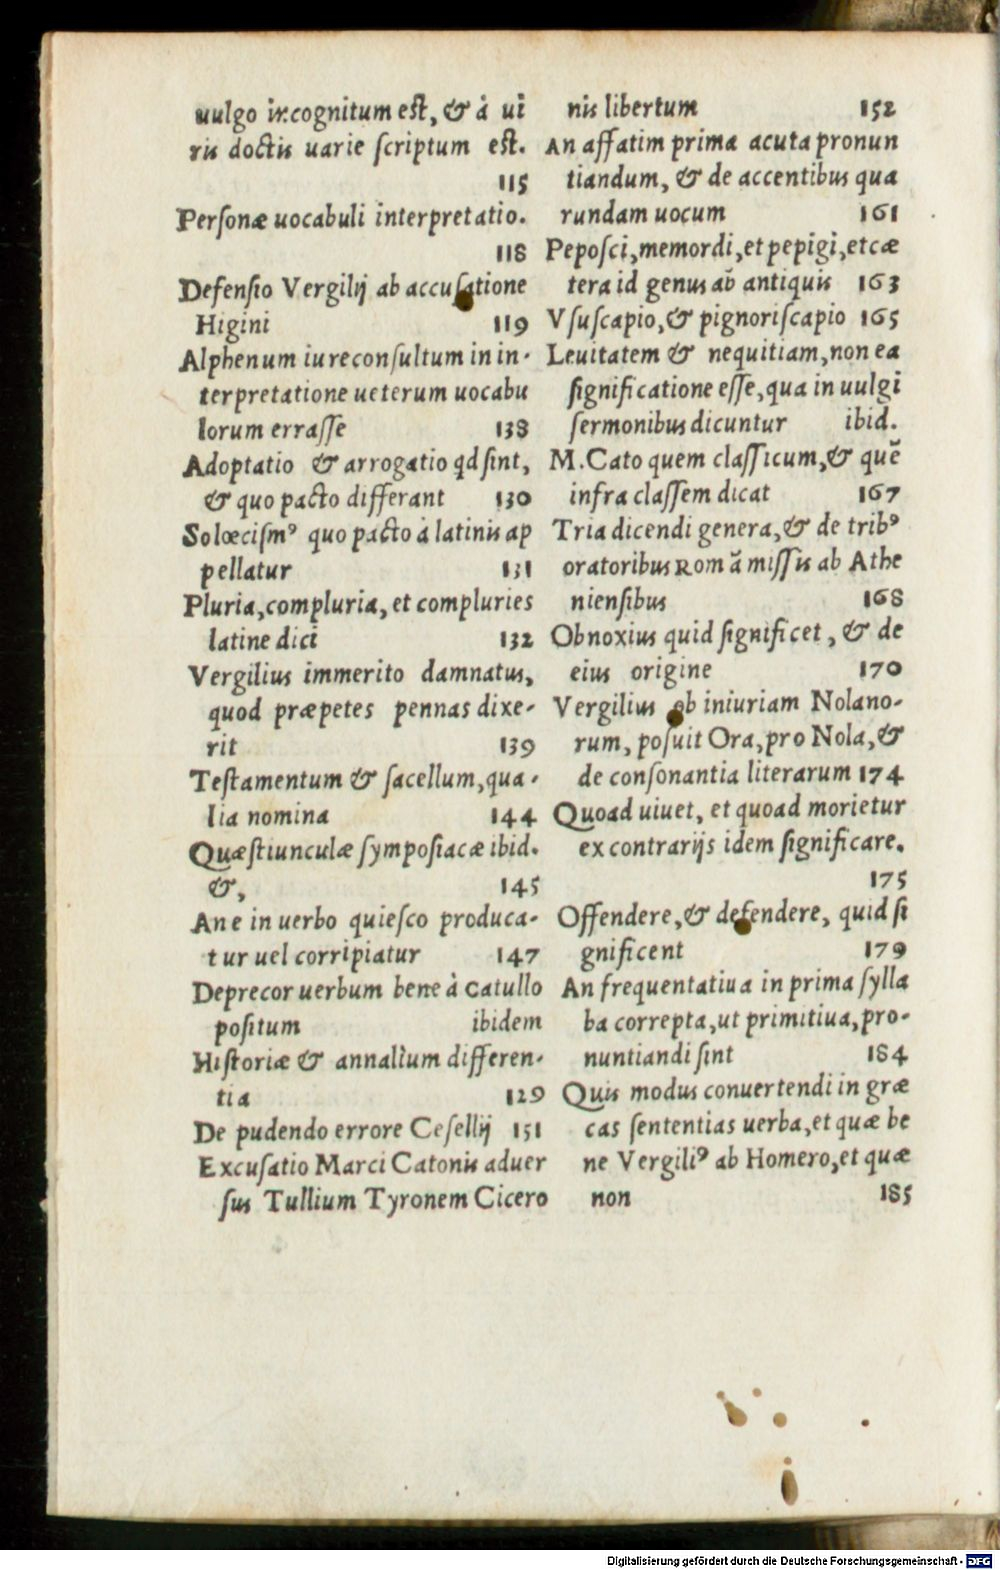 uulgo incognitum est, & à ui
ris doctis uarie scriptum est.
115
Personæ uocabuli interpretatio.
118
Defensio Vergilij ab accusatione
Higini 119
Alphenum iureconsultum in in-
terpretatione ueterum uocabu
lorum errasse 138
Adoptatio & arrogatio qd sint,
& quo pacto differant 130
Solœcismꝰ quo pacto à latinis ap
pellatur 131
Pluria, compluria, et compluries
latine dici 132
Vergilius immerito damnatus,
quod præpetes pennas dixe-
rit 139
Testamentum & sacellum, qua-
lia nomina 144
Quæstiunculæ symposiacæ ibid.
&, 145
An e in uerbo quiesco produca-
tur uel corripiatur 147
Deprecor uerbum bene à Catullo
positum ibidem
Historiæ & annalium differen-
tia 129
De pudendo errore Cesellij 151
Excusatio Marci Catonis aduer
sus Tullium Tyronem Cicero
nis libertum 152
An affatim prima acuta pronun
tiandum, & de accentibus qua
rundam uocum 161
Peposci, memordi, et pepigi, et cæ
tera id genus ab antiquis 163
Vsuscapio, & pignoriscapio 165
Leuitatem & nequitiam, non ea
significatione esse, qua in uulgi
sermonibus dicuntur ibid.
M. Cato quem classicum, & quẽ
infra classem dicat 167
Tria dicendi genera, & de tribꝰ
oratoribus Romã missis ab Athe
niensibus 168
Obnoxius quid significet, & de
eius origine 170
Vergilius ob iniuriam Nolano-
rum, posuit Ora, pro Nola, &
de consonantia literarum 174
Quoad uiuet, et quoad morietur
ex contrarijs idem significare.
175
Offendere, & defendere, quid si
gnificent 179
An frequentatiua in prima sylla
ba correpta, ut primitiua, pro-
nuntiandi sint 184
Quis modus conuertendi in græ
cas sententias uerba, et quæ be
ne Vergiliꝰ ab Homero, et quæ
non 185
Digitalisierung gefördert durch die Deutsche Forschungsgemeinschaft - DFG